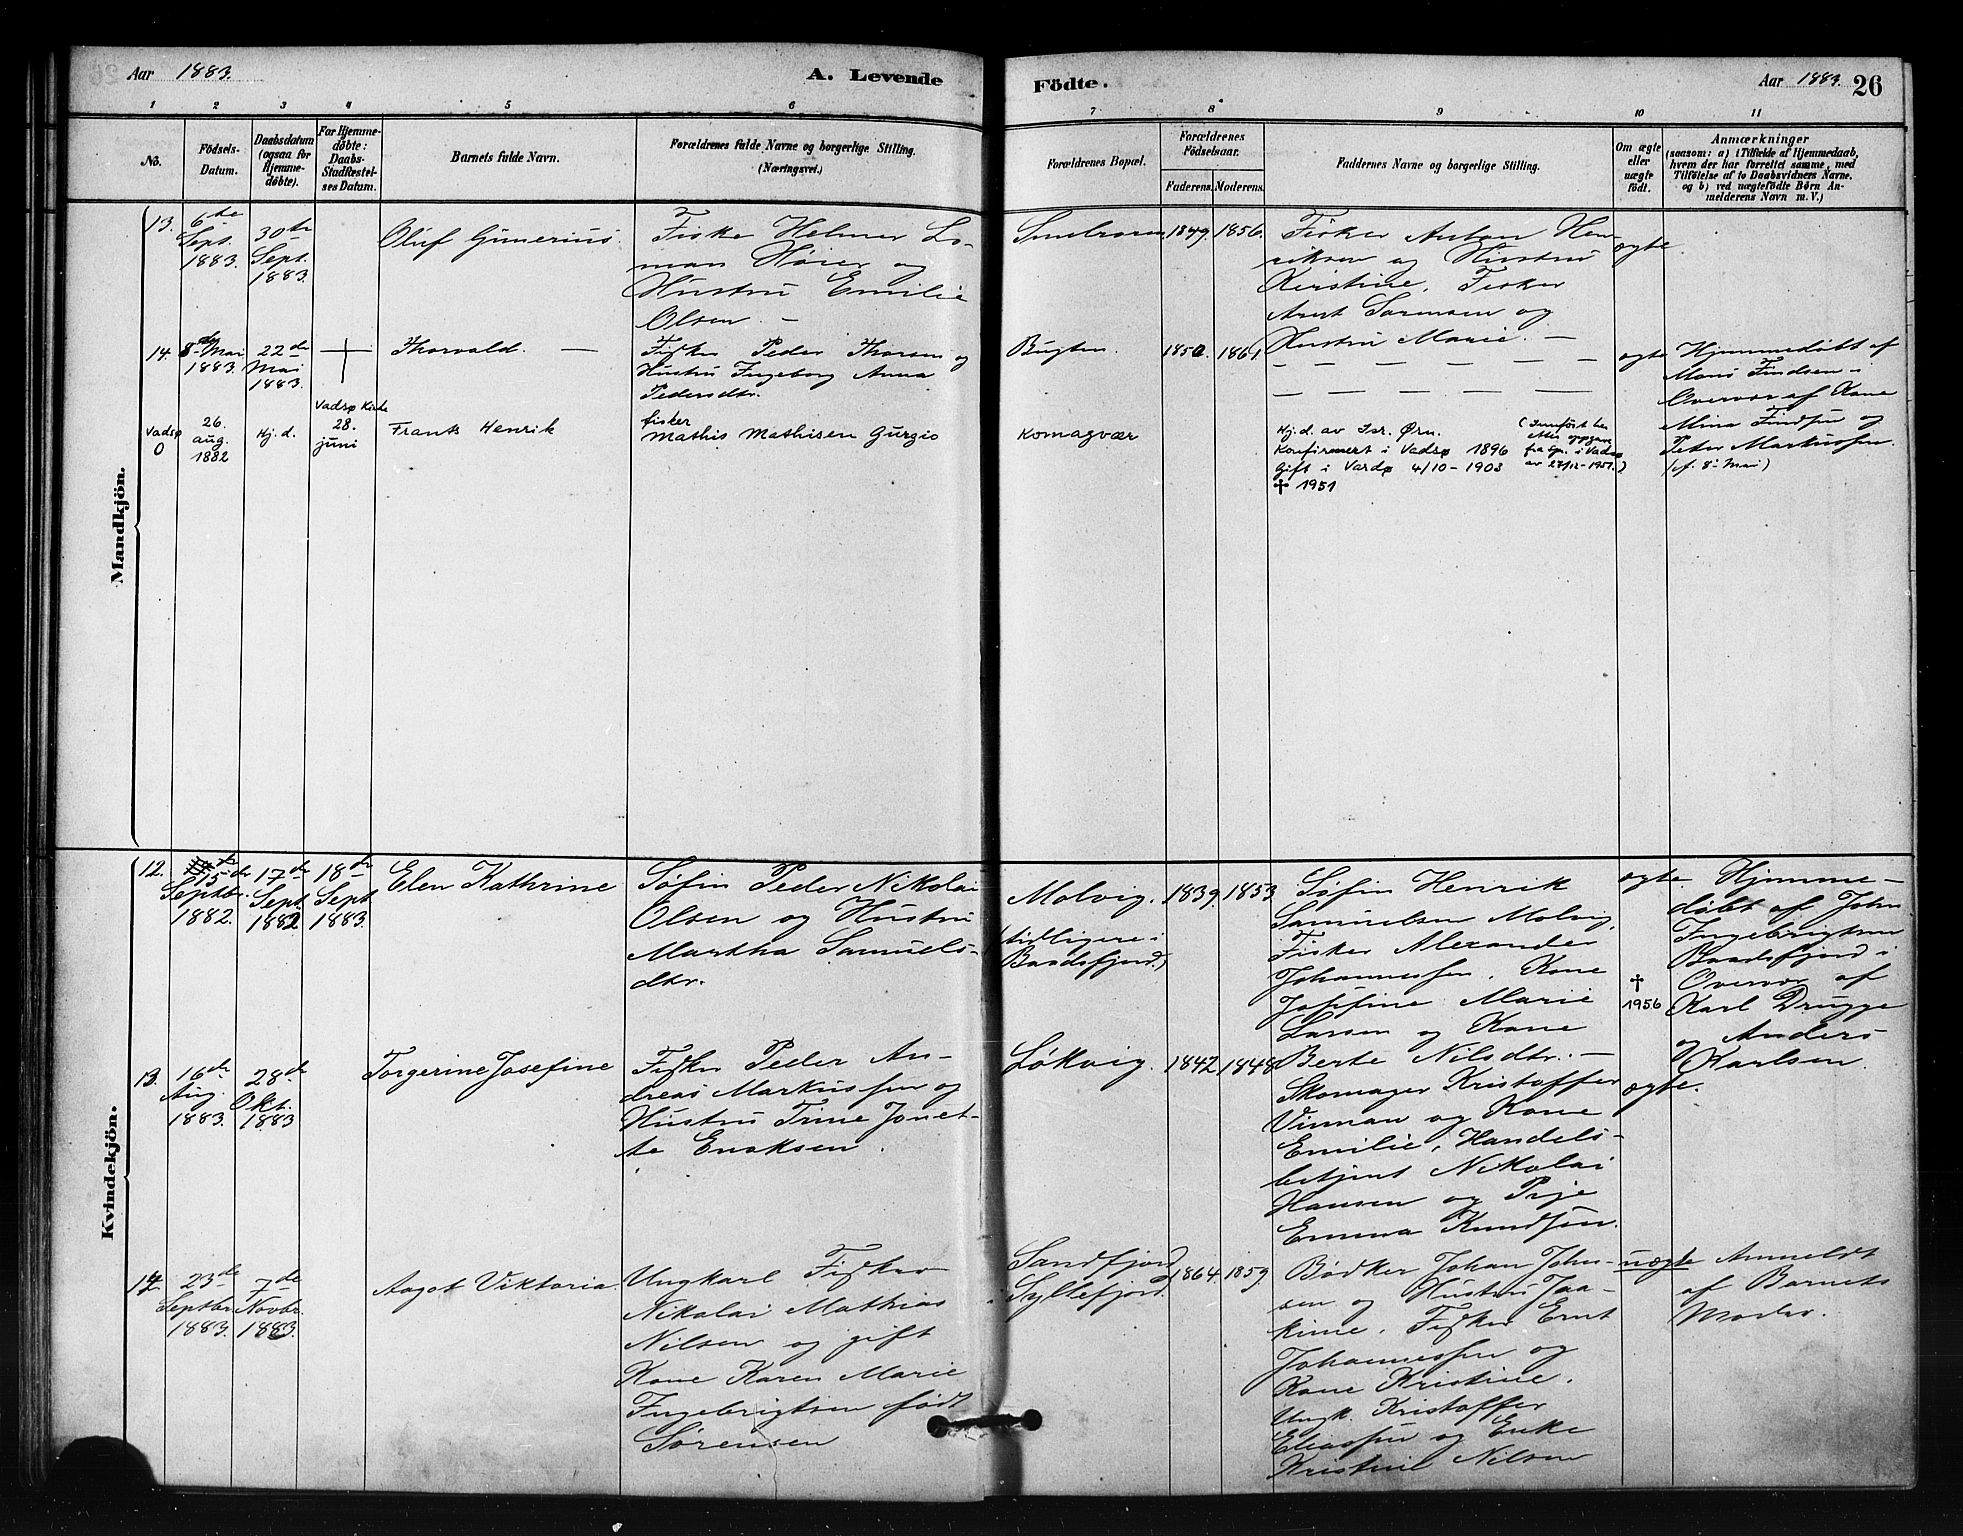 Aar 1883.
A. Levende Födte.
Aar 1883.
26
1 2 3 4 5 6 7 8 9 10 11
No.
Födsels-Datum.
Daabsdatum (ogsaa for Hjemme-døbte).
For Hjemme-døbte: Daabs-Stadfæstelses Datum.
Barnets fulde Navn.
Forældrenes fulde Navne og borgerlige Stilling.
(Næringsvei.)
Forældrenes Bopæl.
Forældrenes Födselsaar.
Faderens. Moderens.
Faddernes Navne og borgerlige Stilling.
Om ægte eller uægte födt.
Anmærkninger
(saasom: a) i Tilfælde af Hjemmedaab,
hvem der har forrettet samme, med
Tilföielse af to Daabsvidners Navne.
og b) ved uægtefödte Börn An-
melderens Navn m. V.)
Mandkjön.
13.
6te Sept. 1883.
30te Sept. 1883.
Oluf Gunerius.
Fisker Helmer Lo-
man Høier og
Hustru Emilie
Olsen. —
1849. 1856.
Fisker Anton Hen-
riksen og Hustru
Kirstine, Fisker
Arnt Sørensen og
Hustru Marie. —
ægte.
14.
8de Mai 1883.
22de Mai 1883.
Thorvald. —
Fisker Peder Thorsen og
Hustru Ingeborg Anna
Pedersdtr.
Bugten.
1850. 1861.
— — — — — —
— — — — —
ægte
Hjemmedøbt af
Mons Findsen i
Overvær af Kone
Mina Findsen og
Peter Markussen.
(f. 8de Mai)
Vadsø
0
26. aug. 1882
Hj.d.
Vadsø Kirke 28. juni
Frants Henrik
fisker
Mathis Mathisen Gurgio
Komagvær
Hj.d. av Isr. Ørn.
Konfirmert i Vadsø 1896
Gift i Vardø 4/10 – 1903
✝ 1951
(Innført her
etter oppgave
fra spr. i Vadsø
av 27/12-1951.)
Kvindekjön.
12.
15de Septbr. 1882.
17de Sept 1882
18de Sept 1883.
Elen Kathrine
Søfin Peder Nikolai
Olsen og Hustru
Martha Samuels-
dtr.
Molvig.
(tidligere i
Baadsfjord.)
1839. 1853.
Søfin Henrik
Samuelsen Molvig,
Fisker Alexander
Johannessen, Kone
Josefine Marie
Larsen og Kone
Berte Nilsdtr. —
ægte.
✝
1956
Hjemme-
døbt af John
Ingebrigtsen
Baadsfjord i
Overvær af
Karl Drugge
og Anders
Karlsen.
13.
16de Aug. 1883.
28de Okt. 1883
Torgerine Josefine
Fisker Peder An-
dreas Markussen og
Hustru Trine Jonet-
te Enoksen.
Løkvig.
1842. 1848.
Skomager Kristoffer
Vinnan og Kone
Emilie, Handels-
betjent Nikolai
Hansen og Pige
Emma Knudsen.
ægte.
14.
23de Septbr. 1883.
7de Novbr. 1883.
Aagot Viktoria.
Ungkarl Fisker
Nikolai Mathias
Nilsen og gift
Kone Karen Marie
Ingebrigtsen født
Sørensen
Sandfjord
Syltefjord.
1864. 1859.
Bødker Johan John-
sen og Hustru Jaa-
kime, Fisker Ernt
Johannessen og
Kone Kristine.
Ungk. Kristoffer
Eliassen og Enke
Kristine Nilsen
uægte
Anmeldt
af Barnets
Moder.